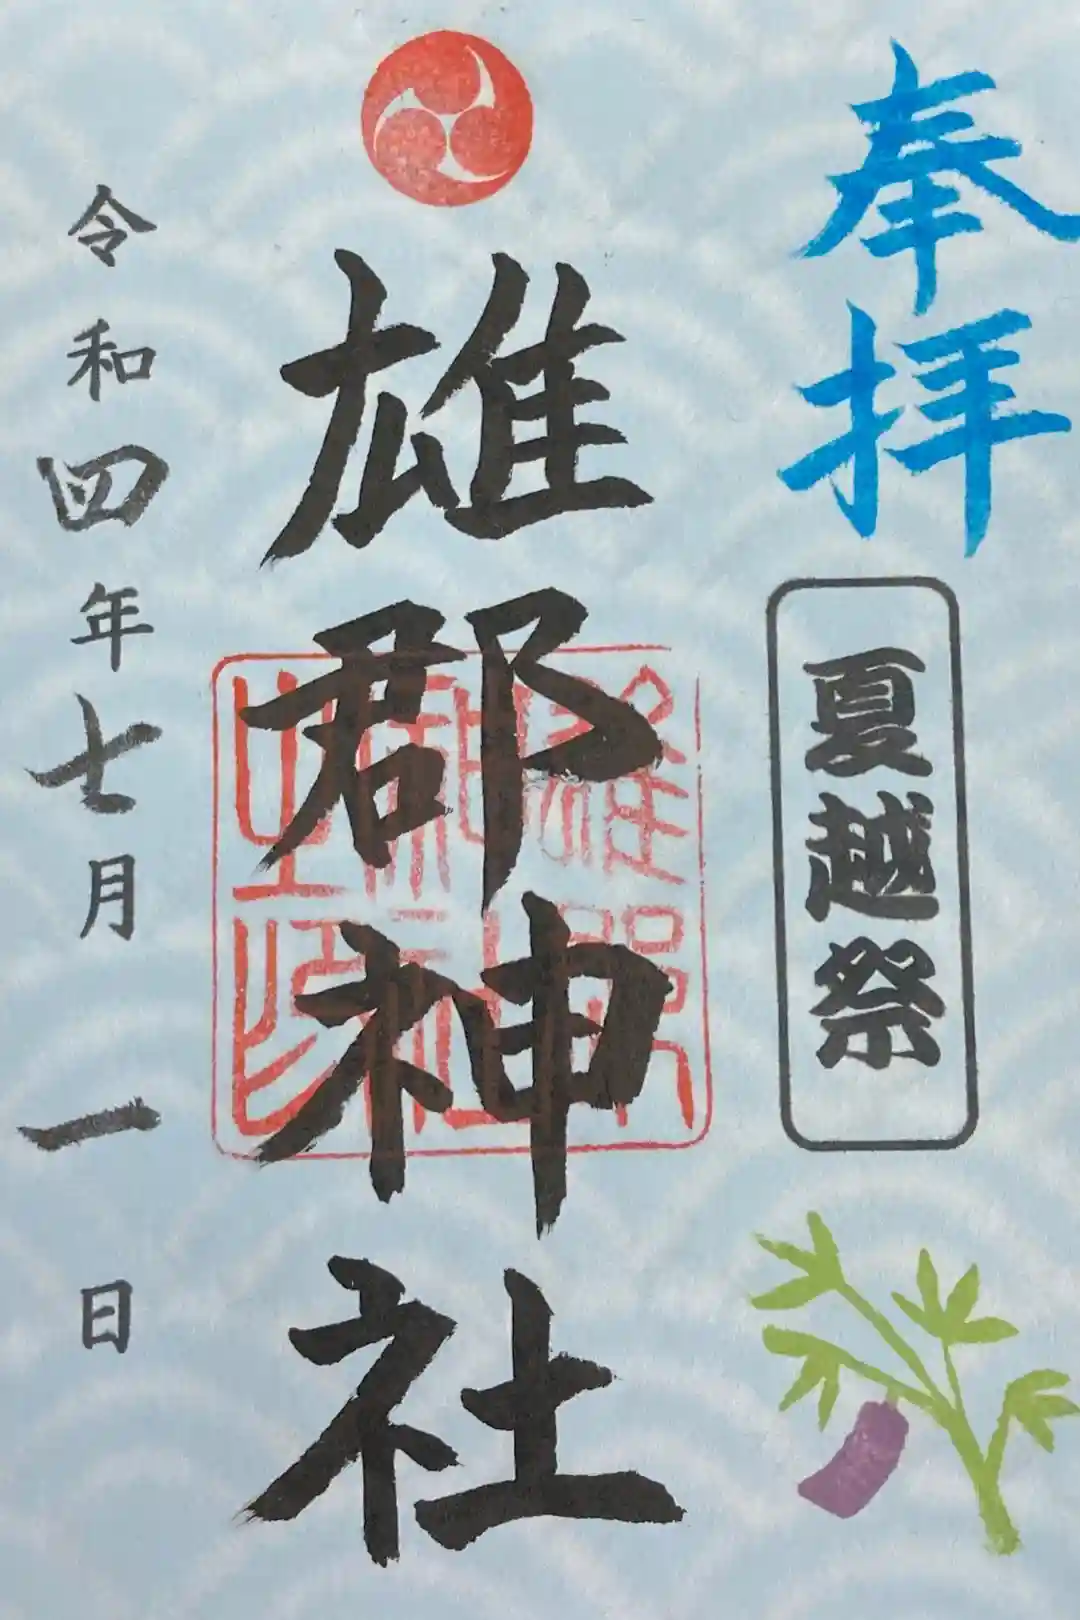 奉拝
夏越祭
雄郡神社
雄郡神社之印
令和四年七月一日